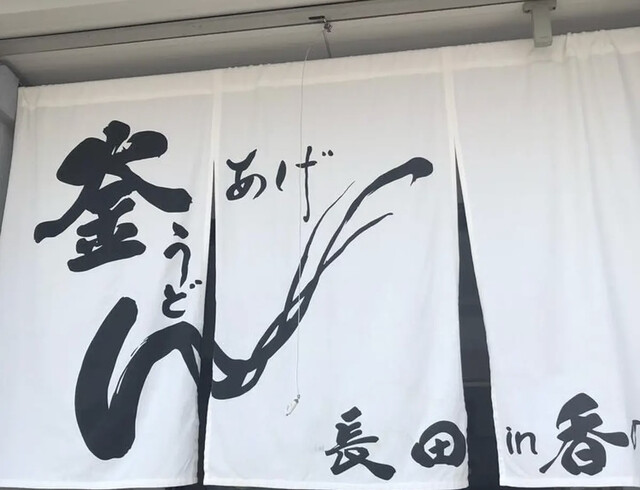 釜あげ
うどん
長田in香